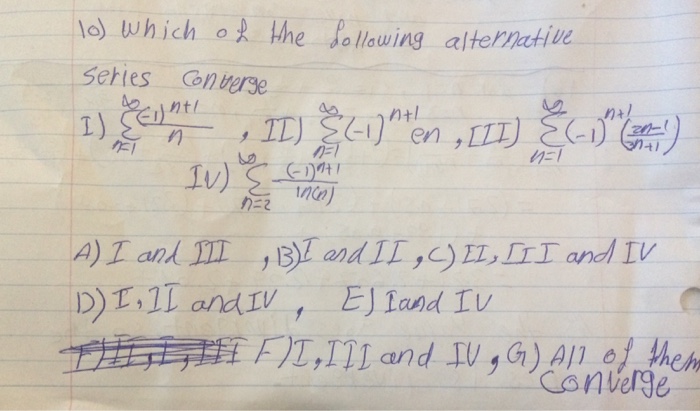 10) Which of the following alternative
series converge
I) ∞Σn=1 (-1)^n+1 / n , II) ∞Σn=1 (-1)^n+1 en , III) ∞Σn=1 (-1)^n+1 (2n-1 / 3n+1)
IV) ∞Σn=2 (-1)^n+1 / ln(n)
A) I and III , B) I and II , C) II, III and IV
D) I, II and IV , E) I and IV
F) I, III and IV , G) All of them
converge